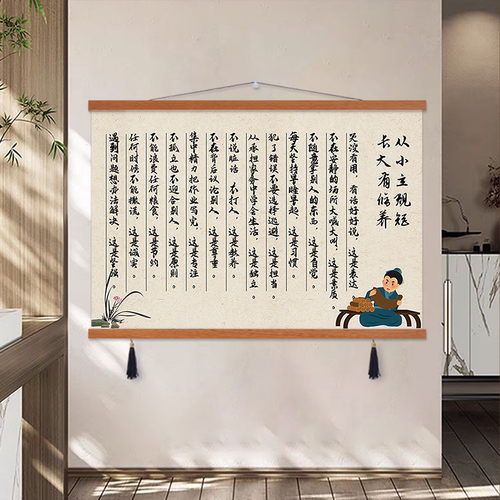 从小立规矩
长大有修养
哭没有用，有话好好说，这是表达。
不在安静的场所大喊大叫，这是素质。
不随意拿别人的东西，这是自觉。
每天坚持早睡早起，这是习惯。
犯了错误不要选择逃避，这是担当。
从承担家务中学会生活，这是独立。
不说脏话，不打人，这是教养。
不在背后议论别人，这是尊重。
集中精力把作业写完，这是专注。
不孤立也不迎合别人，这是原则。
不能浪费任何粮食，这是节约。
任何时候不能撒谎，这是诚实。
遇到问题想办法解决，这是坚强。